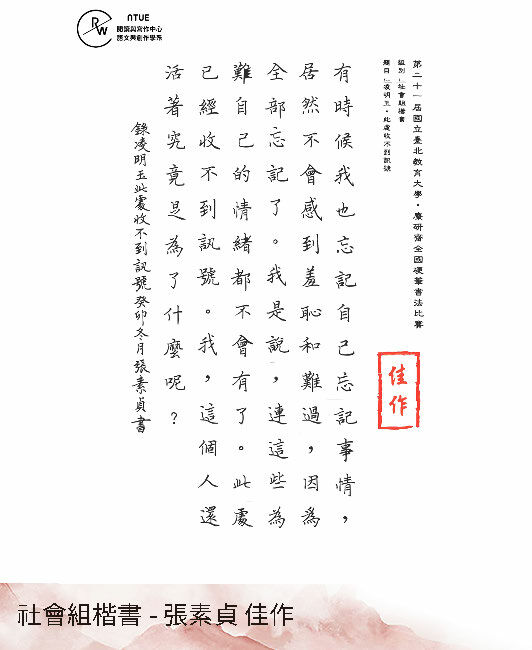 NTUE
閱讀與寫作中心
語文與創作學系
RW
第二十一屆國立臺北教育大學・麋研齋全國硬筆書法比賽
組別：社會組楷書
題目：凌明玉・此處收不到訊號
有時候我也忘記自己忘記事情，
居然不會感到羞恥和難過，因為
全部忘記了。我是說，連這些為
難自己的情緒都不會有了。此處
已經收不到訊號。我，這個人還
活著究竟是為了什麼呢？
錄凌明玉此處收不到訊號癸卯冬月張素貞書
佳作
社會組楷書 - 張素貞 佳作